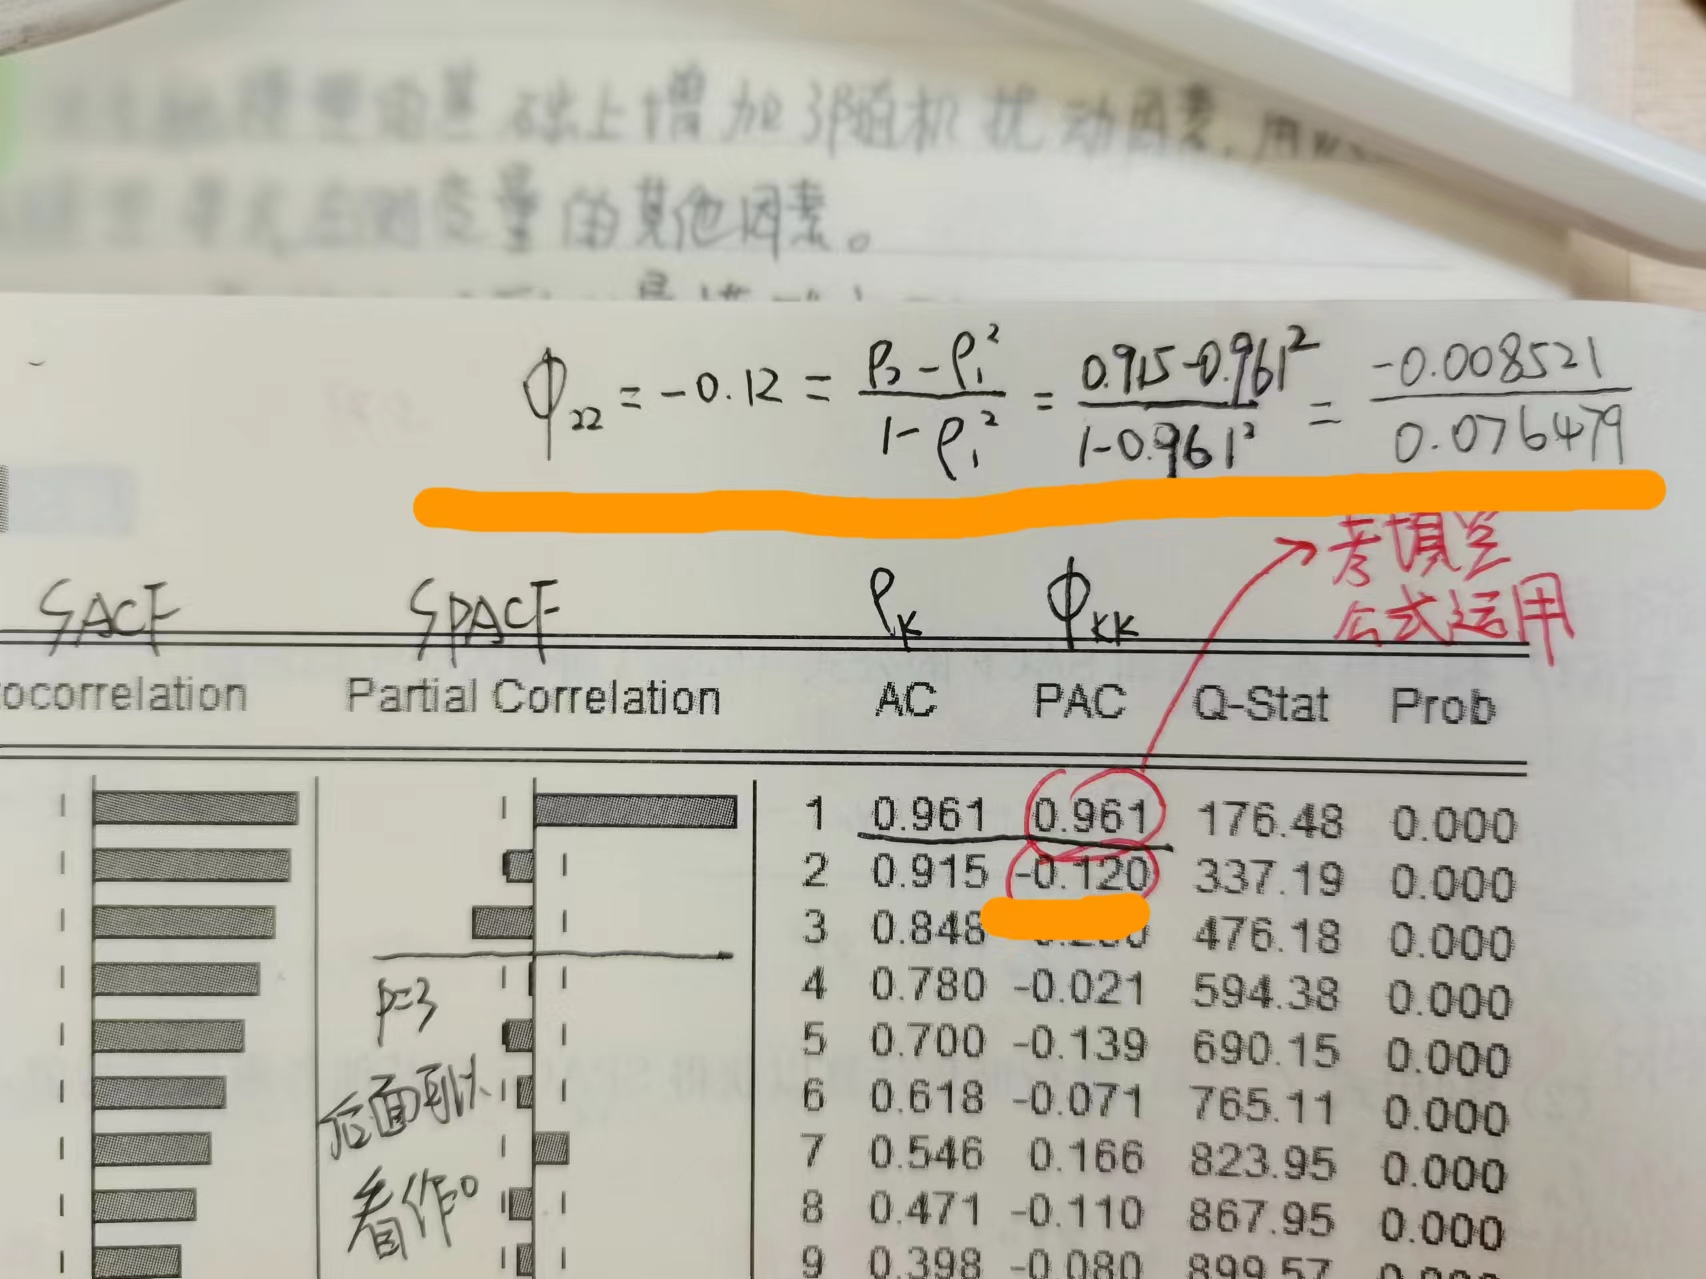 础上增加了随机扰动因素,用以
变量的其他因素。
Φ₂₂ = -0.12 = (ρ₂ - ρ₁²)/(1 - ρ₁²) = (0.915-0.961²)/(1-0.961²) = -0.008521/0.076479
考填空
公式运用
SACF SPACF ρK ΦKK
ocorrelation Partial Correlation AC PAC Q-Stat Prob
1 0.961 0.961 176.48 0.000
2 0.915 -0.120 337.19 0.000
3 0.848 476.18 0.000
4 0.780 -0.021 594.38 0.000
5 0.700 -0.139 690.15 0.000
6 0.618 -0.071 765.11 0.000
7 0.546 0.166 823.95 0.000
8 0.471 -0.110 867.95 0.000
9 0.398 -0.080 899.57 0.000
p=3
后面可以
看作0